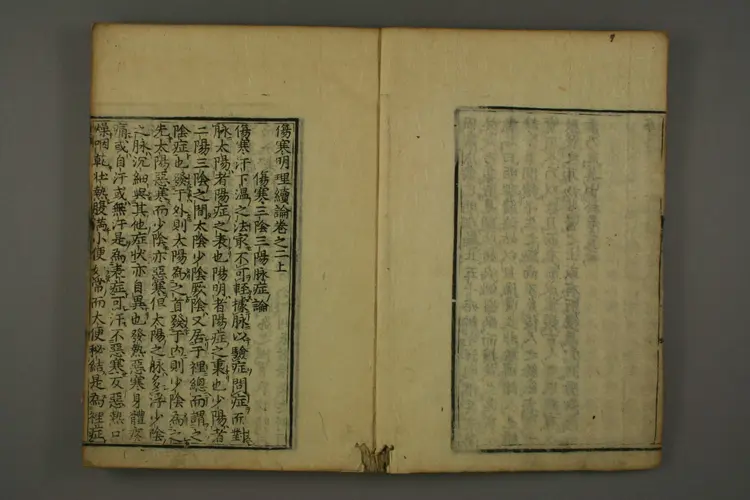 傷寒明理續論卷之二上
傷寒三陰三陽脉症論
傷寒汗下溫之法家不可輕據脉以驗症問症而對
脉太陽者陽症之表也陽明者陽症之裏也少陽者
二陽三陰之間太陰少陰厥陰又居于裡總而謂之
陰症也發于外則太陽為之首發于内則少陰為之
先太陽惡寒而少陰亦惡寒但太陽之脉多浮少陰
之脉沉細與其他症狀亦自異也發熱惡寒身體疼
痛或自汗或無汗是為表症可汗不惡寒反惡熱口
燥咽乾壮熱腹満小便如常而大便秘結是為裡症